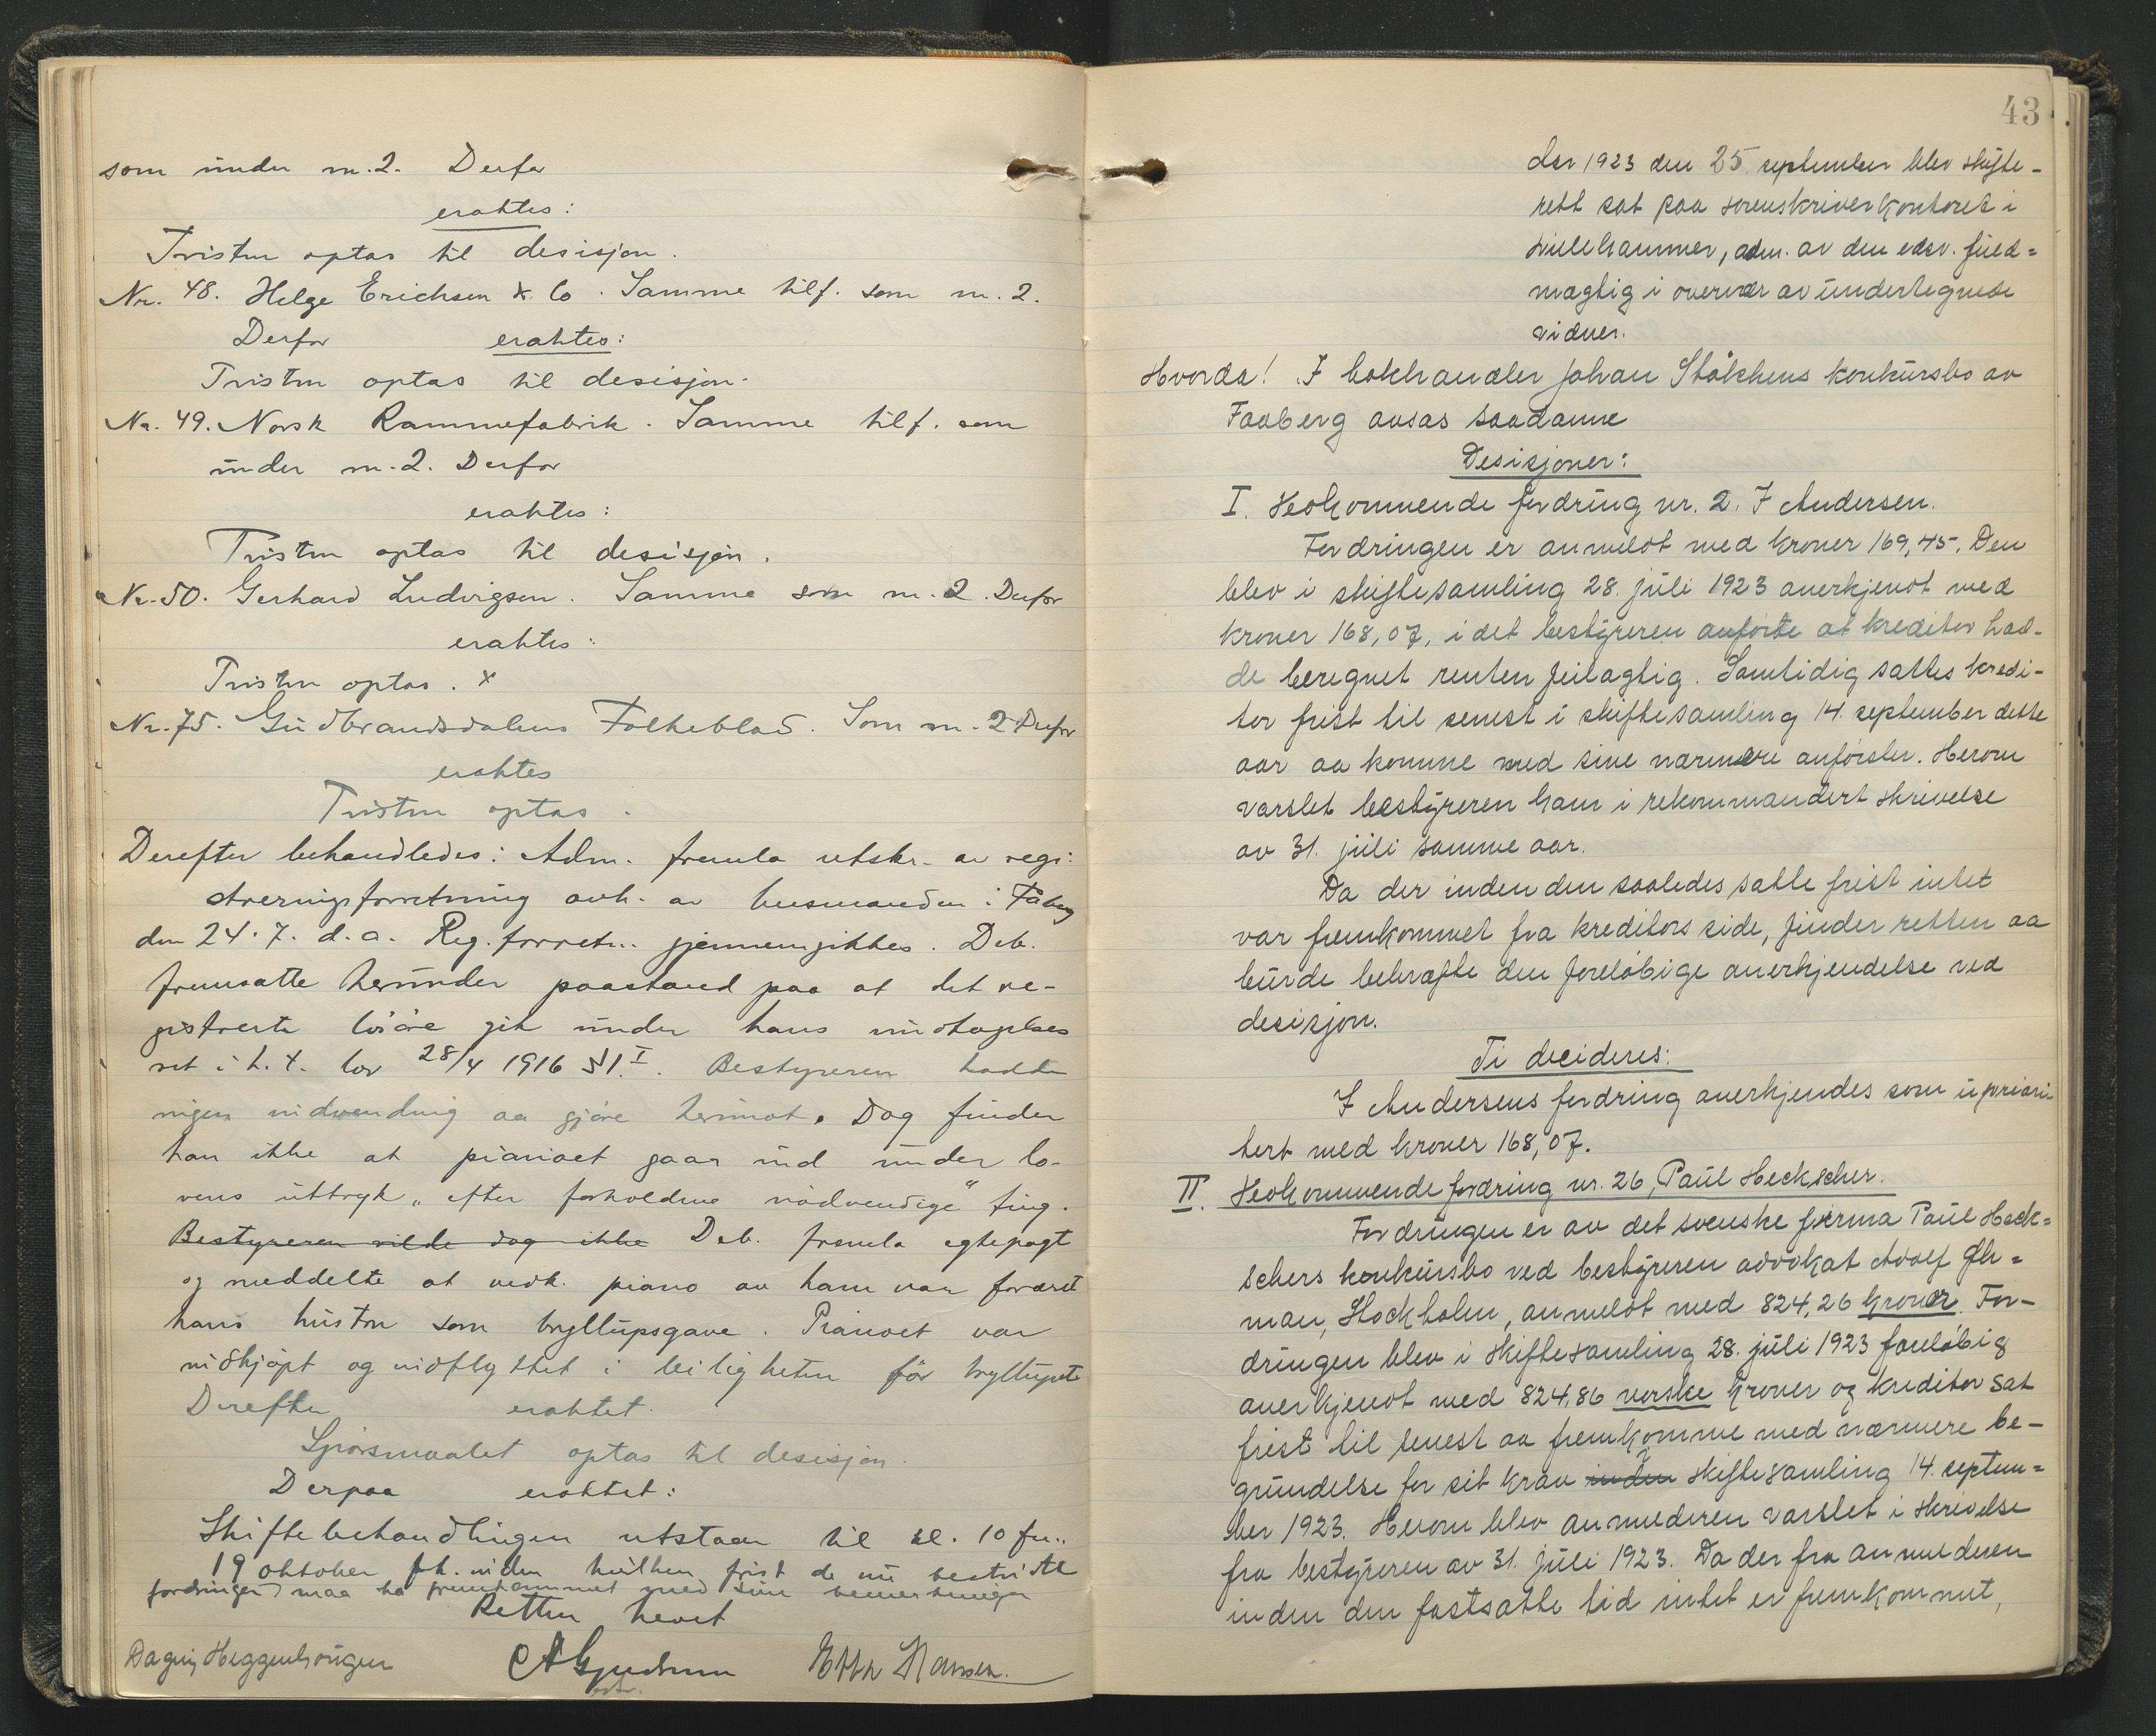 som under m. 2. Derfor
eraktes:
Tvisten optas til desisjon.
Nr. 48. Helge Erichsen & Co. Samme tilf. som m. 2.
Derfor eraktes:
Tvisten optas til desisjon.
Nr. 49. Norsk Rammefabrik. Samme tilf. som
under m. 2. Derfor
eraktes:
Tvisten optas til desisjon.
Nr. 50. Gerhard Ludvigsen. Samme som m. 2. Derfor
eraktes:
Tvisten optas. x
Nr. 75. Gudbrandsdalens Folkeblad. Som m. 2 Derfor
eraktes
Tvisten optas.
Derefter behandledes: Adm. fremla utskr. av regi-
streringsforretning avh. av lensmanden i Fåberg
den 24.7. d.a. Reg. forretn. gjennemgikkes. Deb.
fremsatte herunder paastand paa at det re-
gistrerte løsøre gik under hans undtagelses
ret i h. t. lov 28/4 1916 § 1. I. Bestyreren hadde
ingen indvending aa gjøre herimot. Dog finder
han ikke at pianoet gaar ind under lo-
vens uttryk „efter forholdene nødvendige" ting.
Bestyreren vilde dog ikke Deb. fremla egtepagt
og meddelte at vedk. piano av ham var foræret
hans hustru som bryllupsgave. Pianoet var
indkjøpt og indflyttet i leiligheten før bryllupet.
Derefter eraktet.
Spørsmaalet optas til desisjon.
Derpaa eraktet:
Skiftebehandlingen utstaar til kl. 10 fm.
19 oktober fk. inden hvilken frist de nu bestridte
fordringer maa ha fremkommet med sine bemerkninger
Retten hevet
Dagny Heggenhougen Hansen.
43
der 1923 den 25. september blev skifte-
rett sat paa sorenskriverkontoret i
Lillehammer, adm. av den edsv. fuld=
mægtig i overvær av undertegnede
vidner.
Hvorda! I bokhandler Johan Stålchens konkursbo av
Faaberg avsas saadanne
Desisjoner:
I. Vedkommende fordring nr. 2. I Andersen.
Fordringen er anmeldt med kroner 169,45. Den
blev i skiftesamling 28. juli 1923 anerkjendt med
kroner 168,07, idet bestyreren anførte at kreditor had-
de beregnet renten feilagtig. Samtidig sattes kredi-
tor frist til senest i skiftesamling 14. september dette
aar aa komme med sine nærmere anførsler. Herom
varslet bestyreren ham i rekommandert skrivelse
av 31. juli samme aar.
Da der inden den saaledes satte frist intet
var fremkommet fra kreditors side, finder retten aa
burde bekræfte den foreløbige anerkjendelse ved
desisjon.
Ti decideres:
I Andersens fordring anerkjendes som upriori-
tert med kroner 168,07.
II. Vedkommende fordring nr. 26, Paul Heckscher.
Fordringen er av det svenske firma Paul Heck=
schers konkursbo ved bestyreren advokat Adolf Øh=
man, Stockholm, anmeldt med 824,26 kronor. For-
dringen blev i skiftesamling 28. juli 1923 foreløbig
anerkjendt med 824,86 norske kroner og kreditor sat
frist til senest aa fremkomme med nærmere be-
grundelse for sit krav inden i skiftesamling 14. septem=
ber 1923. Herom blev anmelderen varslet i skrivelse
fra bestyreren av 31. juli 1923. Da der fra anmelderen
inden den fastsatte tid intet er fremkommet,